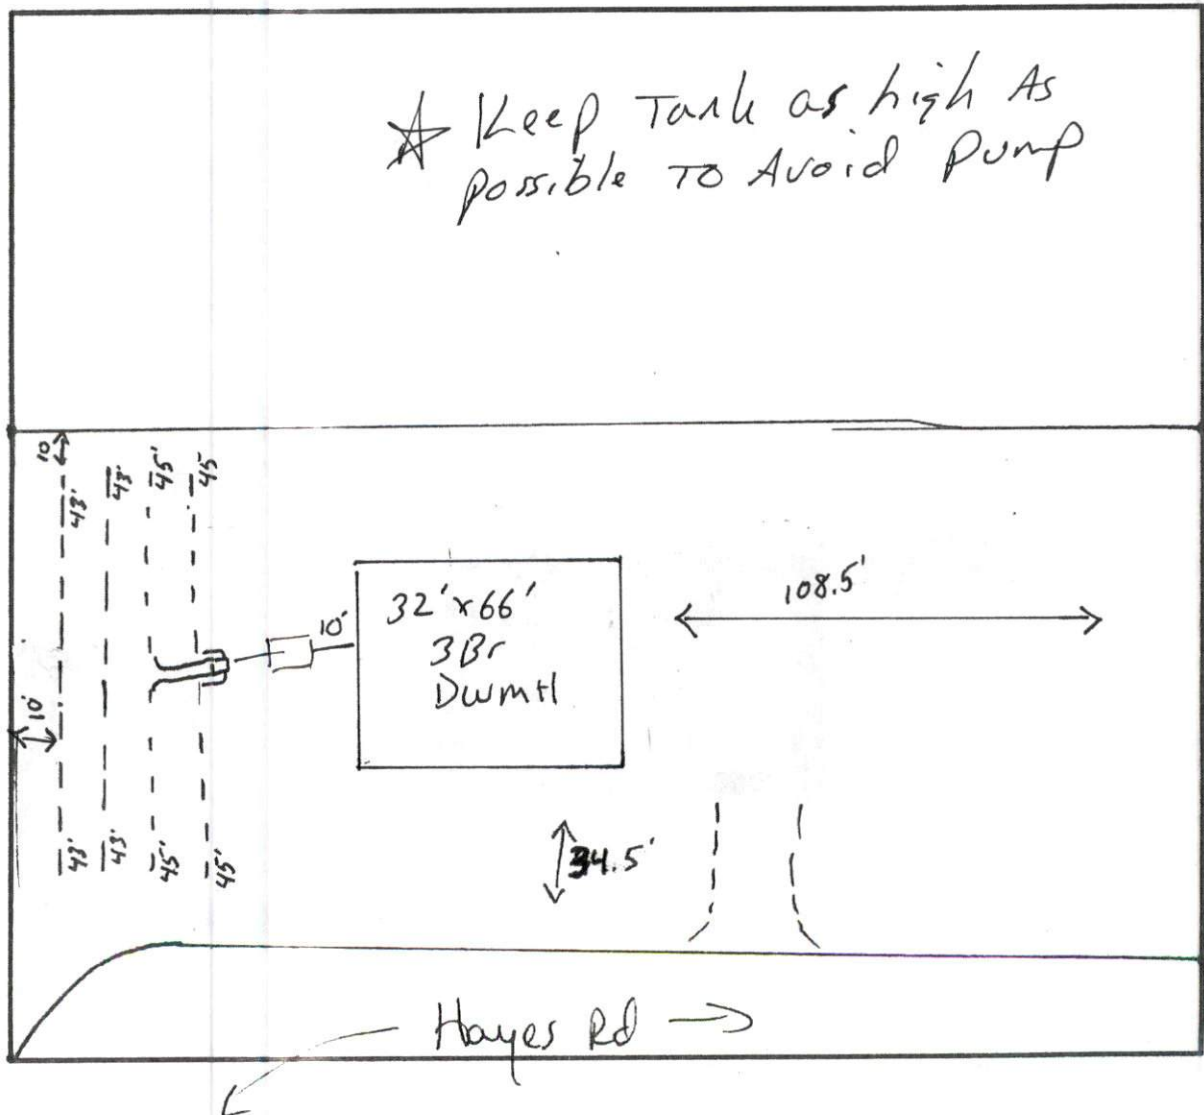 ☆ Keep Tank as high As
possible To Avoid Pump
10'
43'
43'
45'
45'
10'
32'x66'
3Br
Dwmh
108.5'
10'
34.5'
43'
43'
45'
45'
Hayes Rd